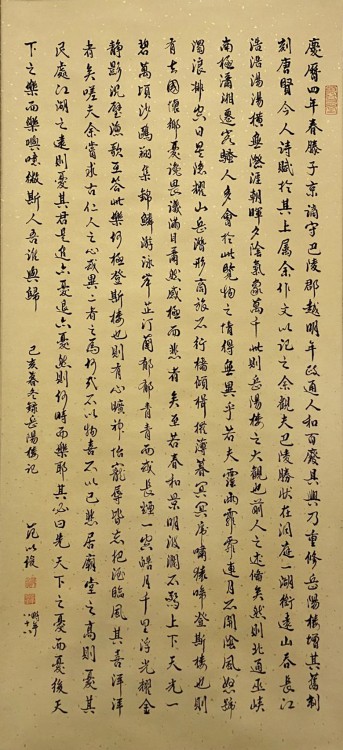 慶曆四年春滕子京謫守巴陵郡越明年政通人和百廢具興乃重修岳陽樓增其舊制
刻唐賢今人詩賦於其上屬余作文以記之余觀夫巴陵勝狀在洞庭一湖銜遠山吞長江
浩浩湯湯橫無際涯朝暉夕陰氣象萬千此則岳陽樓之大觀也前人之述備矣然則北通巫峽
南極瀟湘遷客騷人多會於此覽物之情得無異乎若夫霪雨霏霏連月不開陰風怒號
濁浪排空日星隱耀山岳潛形商旅不行檣傾楫摧薄暮冥冥虎嘯猿啼登斯樓也則
有去國懷鄉憂讒畏譏滿目蕭然感極而悲者矣至若春和景明波瀾不驚上下天光一
碧萬頃沙鷗翔集錦鱗游泳岸芷汀蘭郁郁青青而或長煙一空皓月千里浮光耀金
靜影沉璧漁歌互答此樂何極登斯樓也則有心曠神怡寵辱皆忘把酒臨風其喜洋洋
者矣嗟夫余嘗求古仁人之心或異二者之為何哉不以物喜不以己悲居廟堂之高則憂其
民處江湖之遠則憂其君是進亦憂退亦憂然則何時而樂耶其必曰先天下之憂而憂後天
下之樂而樂歟噫微斯人吾誰與歸 己亥暮冬錄岳陽樓記
范以
時年
八十六